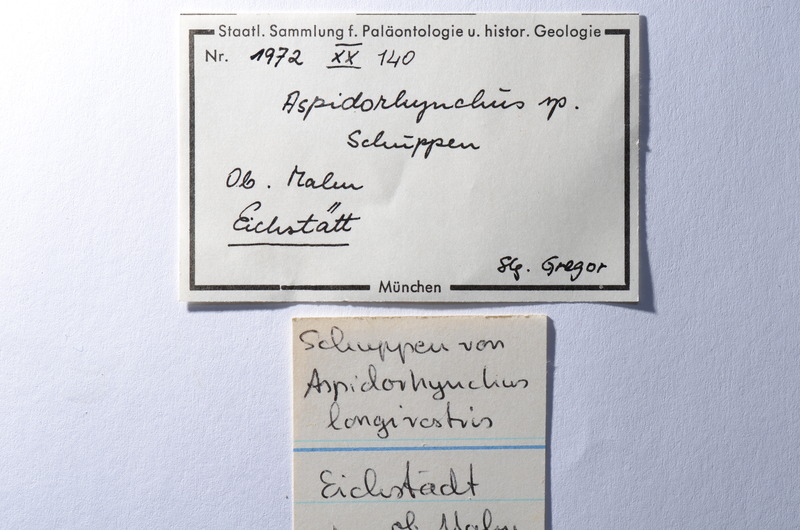 Staatl. Sammlung f. Paläontologie u. histor. Geologie
Nr. 1972 XX 140
Aspidorhynchus sp.
Schuppen
Ob. Malm
Eichstätt
Slg. Gregor
München
Schuppen von
Aspidorhynchus
longirostris
Eichstädt
ob. Malm